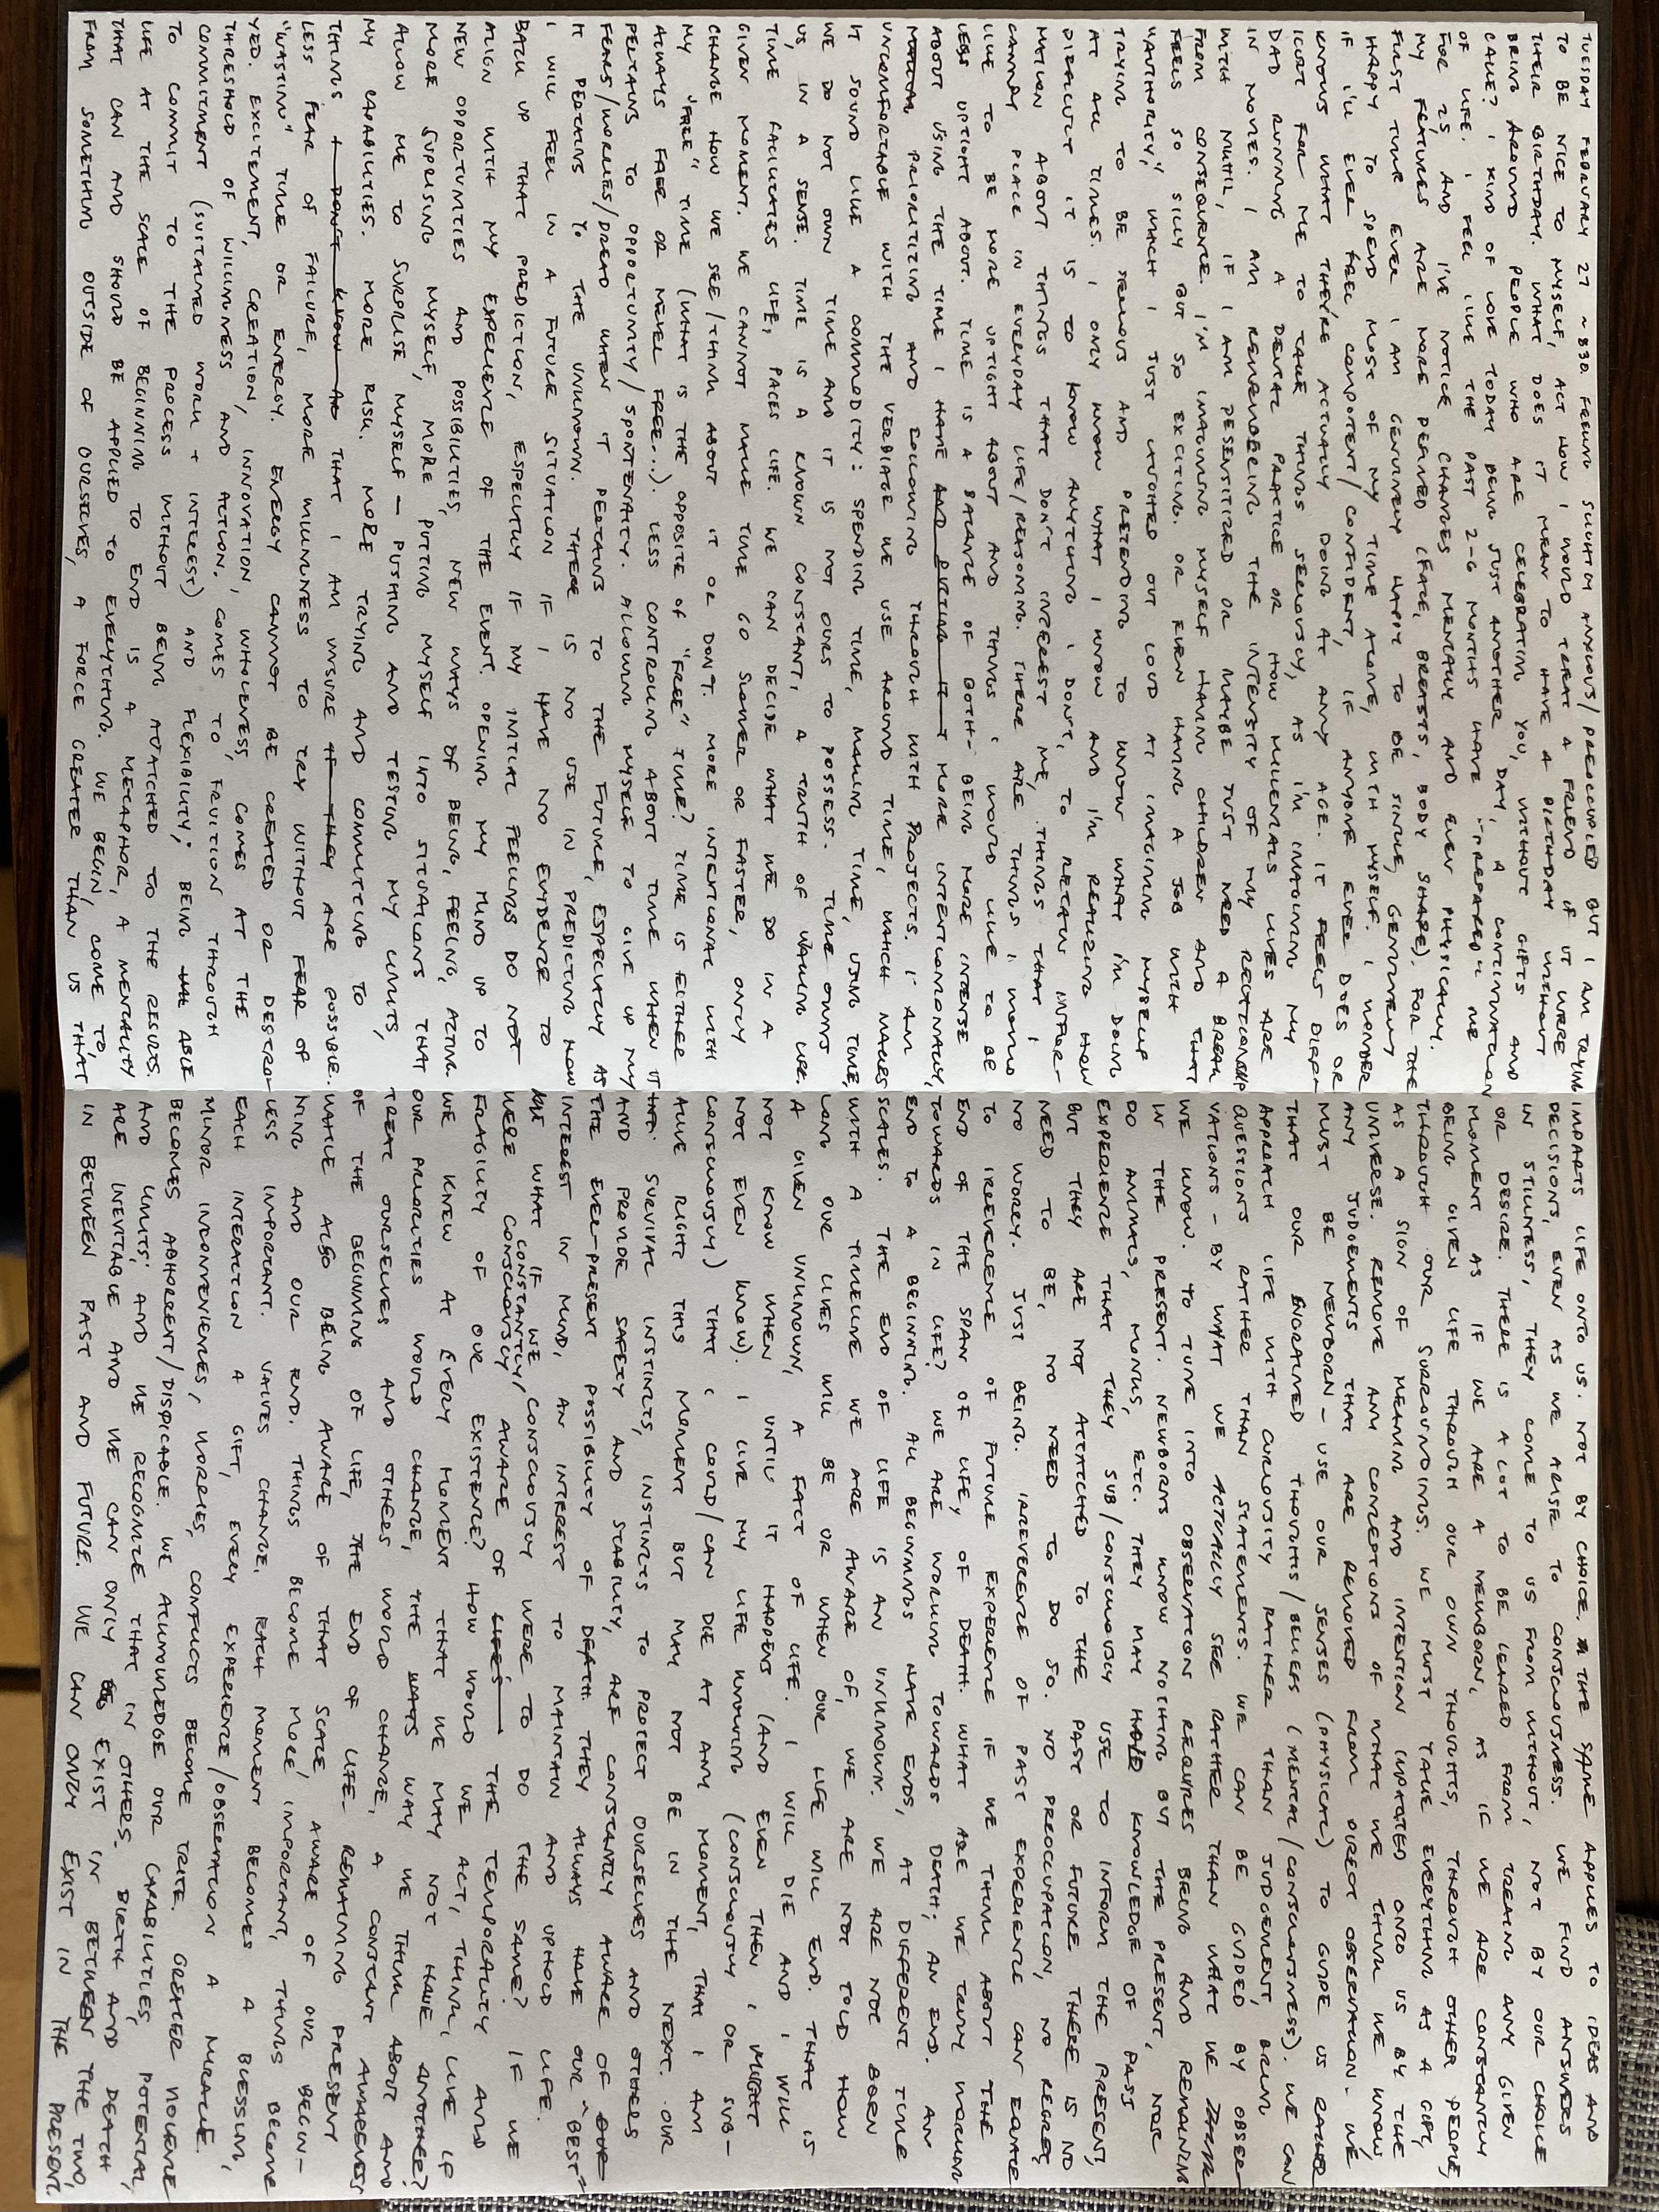 TUESDAY FEBRUARY 27 ~ 830 FEELING SLIGHTLY ANXIOUS/PREOCCUPIED BUT I AM TRYING
TO BE NICE TO MYSELF, ACT HOW I WOULD TREAT A FRIEND IF IT WERE
THEIR BIRTHDAY. WHAT DOES IT MEAN TO HAVE A BIRTHDAY WITHOUT
BEING AROUND PEOPLE WHO ARE CELEBRATING YOU, WITHOUT GIFTS AND
CAKE? I KIND OF LOVE TODAY BEING JUST ANOTHER DAY, A CONTINUATION
OF LIFE. I FEEL LIKE THE PAST 2-6 MONTHS HAVE "PREPARED" ME
FOR 25 AND I'VE NOTICE CHANGES MENTALLY AND EVEN PHYSICALLY.
MY FEATURES ARE MORE DEFINED (FACE, BREASTS, BODY SHAPE). FOR THE
FIRST TIME EVER I AM GENUINELY HAPPY TO BE SINGLE, GENUINELY
HAPPY TO SPEND MOST OF MY TIME ALONE, WITH MYSELF. I WONDER
IF I'LL EVER FEEL COMPOTENT/CONFIDENT, IF ANYONE EVER DOES OR
KNOWS WHAT THEY'RE ACTUALLY DOING AT ANY AGE. IT FEELS DIFFI-
ICULT FOR ME TO TAKE THINGS SERIOUSLY, AS I'M IMAGINING MY
DAD RUNNING A DENTAL PRACTICE OR HOW MILLENIALS LIVES ARE
IN MOVIES. I AM REMEMBERING THE INTENSITY OF MY RELATIONSHIP
WITH NUHIL, IF I AM DESENSITIZED OR MAYBE JUST NEED A BREAK
FROM CONSEQUENCE. I'M IMAGINING MYSELF HAVING CHILDREN AND THAT
FEELS SO SILLY BUT SO EXCITING. OR EVEN HAVING A JOB WITH
"AUTHORITY," WHICH I JUST LAUGHED OUT LOUD AT IMAGINING MYSELF
TRYING TO BE SERIOUS AND PRETENDING TO KNOW WHAT I'M DOING
AT ALL TIMES. I ONLY KNOW WHAT I KNOW AND I'M REALIZING HOW
DIFFICULT IT IS TO KNOW ANYTHING I DON'T, TO RETAIN INFOR-
MATION ABOUT THINGS THAT DON'T INTEREST ME, THINGS THAT I
CANNOT PLACE IN EVERYDAY LIFE/REASONING. THERE ARE THINGS I WOULD
LIKE TO BE MORE UPTIGHT ABOUT AND THINGS I WOULD LIKE TO BE
LESS UPTIGHT ABOUT. TIME IS A BALANCE OF BOTH - BEING MORE INTENSE
ABOUT USING THE TIME I HAVE AND PUTTING IT MORE INTENTIONALLY,
MAKING PRIORITIZING AND FOLLOWING THROUGH WITH PROJECTS. I AM
UNCOMFORTABLE WITH THE VERBIAGE WE USE AROUND TIME, WHICH MAKES
IT SOUND LIKE A COMMODITY: SPENDING TIME, MAKING TIME, USING TIME,
WE DO NOT OWN TIME AND IT IS NOT OURS TO POSSESS. TIME OWNS
US, IN A SENSE. TIME IS A KNOWN CONSTANT, A TRUTH OF WAKING LIFE.
TIME FACILITATES LIFE, PACES LIFE. WE CAN DECIDE WHAT WE DO IN A
GIVEN MOMENT. WE CANNOT MAKE TIME GO SLOWER OR FASTER, ONLY
CHANGE HOW WE SEE/THINK ABOUT IT OR DON'T. MORE INTENTIONAL WITH
MY "FREE" TIME (WHAT IS THE OPPOSITE OF "FREE" TIME? TIME IS EITHER
ALWAYS FREE OR NEVER FREE...). LESS CONTROLING ABOUT TIME WHEN IT
PERTAINS TO OPPORTUNITY/SPONTENAITY. ALLOWING MYSELF TO GIVE UP MY
FEARS/WORRIES/DREAD WHEN IT PERTAINS TO THE FUTURE, ESPECIALLY AS
IT PERTAINS TO THE UNKNOWN. THERE IS NO USE IN PREDICTING HOW
I WILL FEEL IN A FUTURE SITUATION IF I HAVE NO EVIDENCE TO
BACK UP THAT PREDICTION, ESPECIALLY IF MY INITIAL FEELINGS DO NOT
ALIGN WITH MY EXPERIENCE OF THE EVENT. OPENING MY MIND UP TO
NEW OPPORTUNITIES AND POSSIBILITIES, NEW WAYS OF BEING, FEELING, ACTING
MORE SUPRISING MYSELF, MORE PUTTING MYSELF INTO SITUATIONS THAT
ALLOW ME TO SURPRISE MYSELF - PUSHING AND TESTING MY LIMITS,
MY CAPABILITIES. MORE RISK. MORE TRYING AND COMMITTING TO
THINGS I DON'T KNOW HO THAT I AM UNSURE IF THEY ARE POSSIBLE.
LESS FEAR OF FAILURE, MORE WILLINGNESS TO TRY WITHOUT FEAR OF
"WASTING" TIME OR ENERGY. ENERGY CANNOT BE CREATED OR DESTRO-
YED. EXCITEMENT, CREATION, INNOVATION, WHOLENESS, COMES AT THE
THRESHOLD OF WILLINGNESS AND ACTION, COMES TO FRUITION THROUGH
COMMITMENT (SUSTAINED WORK + INTEREST) AND FLEXIBILITY; BEING ABLE
TO COMMIT TO THE PROCESS WITHOUT BEING ATTATCHED TO THE RESULTS.
LIFE AT THE SCALE OF BEGINNING TO END IS A METAPHOR, A MENTALITY
THAT CAN AND SHOULD BE APPLIED TO EVERYTHING. WE BEGIN, COME TO,
FROM SOMETHING OUTSIDE OF OURSELVES, A FORCE GREATER THAN US THAT
IMPARTS LIFE ONTO US. NOT BY CHOICE. THE SAME APPLIES TO IDEAS AND
DECISIONS, EVEN AS WE ARISE TO CONSCIOUSNESS. WE FIND ANSWERS
IN STILLNESS, THEY COME TO US FROM WITHOUT, NOT BY OUR CHOICE
OR DESIRE. THERE IS A LOT TO BE LEARED FROM TREATING ANY GIVEN
MOMENT AS IF WE ARE A NEWBORN, AS IF WE ARE CONSTANTLY
BEING GIVEN LIFE THROUGH OUR OWN THOUGHTS, THROUGH OTHER PEOPLE,
THROUGH OUR SURROUNDINGS. WE MUST TAKE EVERYTHING AS A GIFT,
AS A SIGN OF MEANING AND INTENTION IMPARTED ONTO US BY THE
UNIVERSE. REMOVE ANY CONCEPTIONS OF WHAT WE THINK WE KNOW,
ANY JUDGEMENTS THAT ARE REMOVED FROM DIRECT OBSERVATION. WE
MUST BE NEWBORN - USE OUR SENSES (PHYSICAL) TO GUIDE US RATHER
THAT OUR INGRAINED THOUGHTS/BELIEFS (MENTAL/CONSCIOUSNESS). WE CAN
APPROACH LIFE WITH CURIOUSITY RATHER THAN JUDGEMENT, BRING
QUESTIONS RATHER THAN STATEMENTS. WE CAN BE GUIDED BY OBSER-
VATIONS - BY WHAT WE ACTUALLY SEE RATHER THAN WHAT WE THINK
WE KNOW. TO TUNE INTO OBSERVATION REQUIRES BEING AND REMAINING
IN THE PRESENT. NEWBORNS KNOW NOTHING BUT THE PRESENT, NOR
DO ANIMALS, MONKS, ETC. THEY MAY HAVE KNOWLEDGE OF PASS
EXPERIENCE THAT THEY SUB/CONSCIOUSLY USE TO INFORM THE PRESENT,
BUT THEY ARE NOT ATTATCHED TO THE PAST OR FUTURE. THERE IS NO
NEED TO BE, NO NEED TO DO SO. NO PREOCCUPATION, NO REGRET,
NO WORRY. JUST BEING. IRREVERENCE OF PAST EXPERIENCE CAN EQUATE
TO IRREVERENCE OF FUTURE EXPERIENCE IF WE THINK ABOUT THE
END OF THE SPAN OF LIFE, OF DEATH. WHAT ARE WE TRULY WORKING
TOWARDS IN LIFE? WE ARE WORKING TOWARDS DEATH; AN END. AN
END TO A BEGINNING. ALL BEGINNINGS HAVE ENDS, AT DIFFERENT TIME
SCALES. THE END OF LIFE IS AN UNKNOWN. WE ARE NOT BORN
WITH A TIMELINE WE ARE AWARE OF, WE ARE NOT TOLD HOW
LONG OUR LIVES WILL BE OR WHEN OUR LIFE WILL END. THAT IS
A GIVEN UNKNOWN, A FACT OF LIFE. I WILL DIE AND I WILL
NOT KNOW WHEN UNTIL IT HAPPENS (AND EVEN THEN I MIGHT
NOT EVEN KNOW). I LIVE MY LIFE KNOWING (CONSCIOUSLY OR SUB-
CONSCIOUSLY) THAT I COULD/CAN DIE AT ANY MOMENT, THAT I AM
ALIVE RIGHT THIS MOMENT BUT MAY NOT BE IN THE NEXT. OUR
SURVIVAL INSTINCTS, INSTINCTS TO PROTECT OURSELVES AND OTHERS
AND PROVIDE SAFETY AND STABILITY, ARE CONSTANTLY AWARE OF OUR
THE EVER-PRESENT POSSIBILITY OF DEATH. THEY ALWAYS HAVE OUR "BEST"
INTEREST IN MIND, AN INTEREST TO MAINTAIN AND UPHOLD LIFE.
WHAT IF WE CONSCIOUSLY WERE TO DO THE SAME? IF WE
WERE CONSTANTLY, CONSCIOUSLY, AWARE OF LIFE'S THE TEMPORALITY AND
FRAGILITY OF OUR EXISTENCE? HOW WOULD WE ACT, THINK, LIVE IF
WE KNEW AT EVERY MOMENT THAT WE MAY NOT HAVE ANOTHER?
OUR PRIORITIES WOULD CHANGE, THE WAYS WAY WE THINK ABOUT AND
TREAT OURSELVES AND OTHERS WOULD CHANGE, A CONSTANT AWARENESS
OF THE BEGINNING OF LIFE, THE END OF LIFE - REMAINING PRESENT
WHILE ALSO BEING AWARE OF THAT SCALE, AWARE OF OUR BEGIN-
NING AND OUR END. THINGS BECOME MORE IMPORTANT, THINGS BECOME
LESS IMPORTANT. VALUES CHANGE. EACH MOMENT BECOMES A BLESSING,
EACH INTERACTION A GIFT, EVERY EXPERIENCE/OBSERVATION A MIRACLE.
MINOR INCONVENIENCES, WORRIES, CONFLICTS BECOME TRITE. GREATER VIOLENCE
BECOMES ABHORRENT/DISPICABLE. WE ACKNOWLEDGE OUR CAPABILITIES, POTENTIAL,
AND LIMITS; AND WE RECOGNIZE THAT IN OTHERS. BIRTH AND DEATH
ARE INEVITABLE AND WE CAN ONLY EXIST IN BETWEEN THE TWO,
IN BETWEEN PAST AND FUTURE. WE CAN ONLY EXIST IN THE PRESENT.